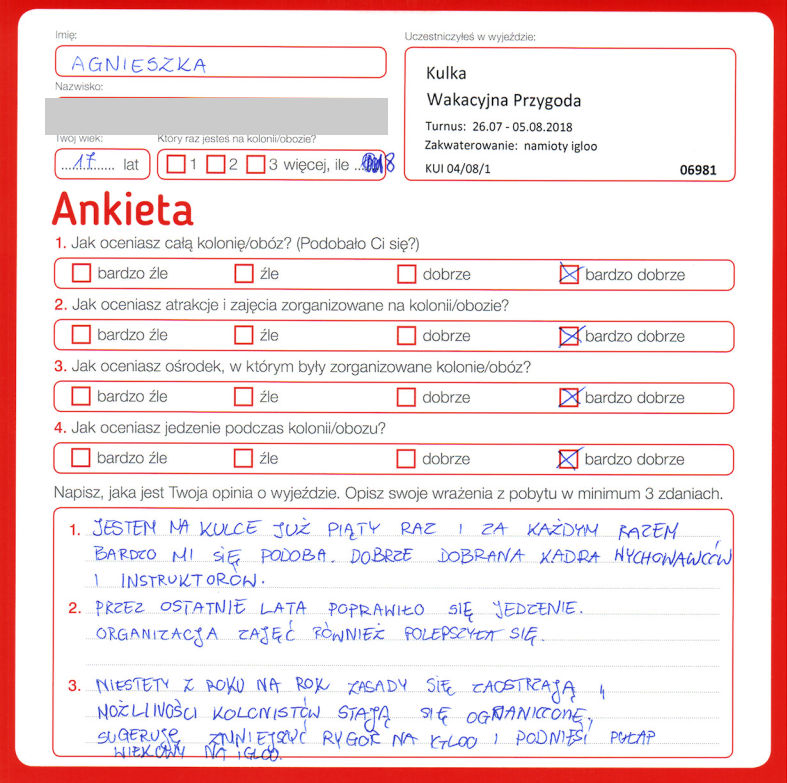 Imię:
AGNIESZKA
Nazwisko:
Twój wiek:
17 lat
Który raz jesteś na kolonii/obozie?
1 2 3 więcej, ile 8
Uczestniczyłeś w wyjeździe:
Kulka
Wakacyjna Przygoda
Turnus: 26.07 - 05.08.2018
Zakwaterowanie: namioty igloo
KUI 04/08/1 06981
Ankieta
1. Jak oceniasz całą kolonię/obóz? (Podobało Ci się?)
bardzo źle źle dobrze bardzo dobrze
2. Jak oceniasz atrakcje i zajęcia zorganizowane na kolonii/obozie?
bardzo źle źle dobrze bardzo dobrze
3. Jak oceniasz ośrodek, w którym były zorganizowane kolonie/obóz?
bardzo źle źle dobrze bardzo dobrze
4. Jak oceniasz jedzenie podczas kolonii/obozu?
bardzo źle źle dobrze bardzo dobrze
Napisz, jaka jest Twoja opinia o wyjeździe. Opisz swoje wrażenia z pobytu w minimum 3 zdaniach.
1. JESTEM NA KULCE JUŻ PIĄTY RAZ I ZA KAŻDYM RAZEM
BARDZO MI SIĘ PODOBA. DOBRZE DOBRANA KADRA WYCHOWAWCÓW
I INSTRUKTORÓW.
2. PRZEZ OSTATNIE LATA POPRAWIŁO SIĘ JEDZENIE.
ORGANIZACJA ZAJĘĆ RÓWNIEŻ POLEPSZYŁA SIĘ.
3. NIESTETY Z ROKU NA ROK ZASADY SIĘ ZAOSTRZAJĄ I
MOŻLIWOŚCI KOLONISTÓW STAJĄ SIĘ OGRANICZONE,
SUGERUJĘ ZMNIEJSZYĆ RYGOR NA IGLOO I PODNIEŚĆ PUŁAP
WIEKOWY NA IGLOO.